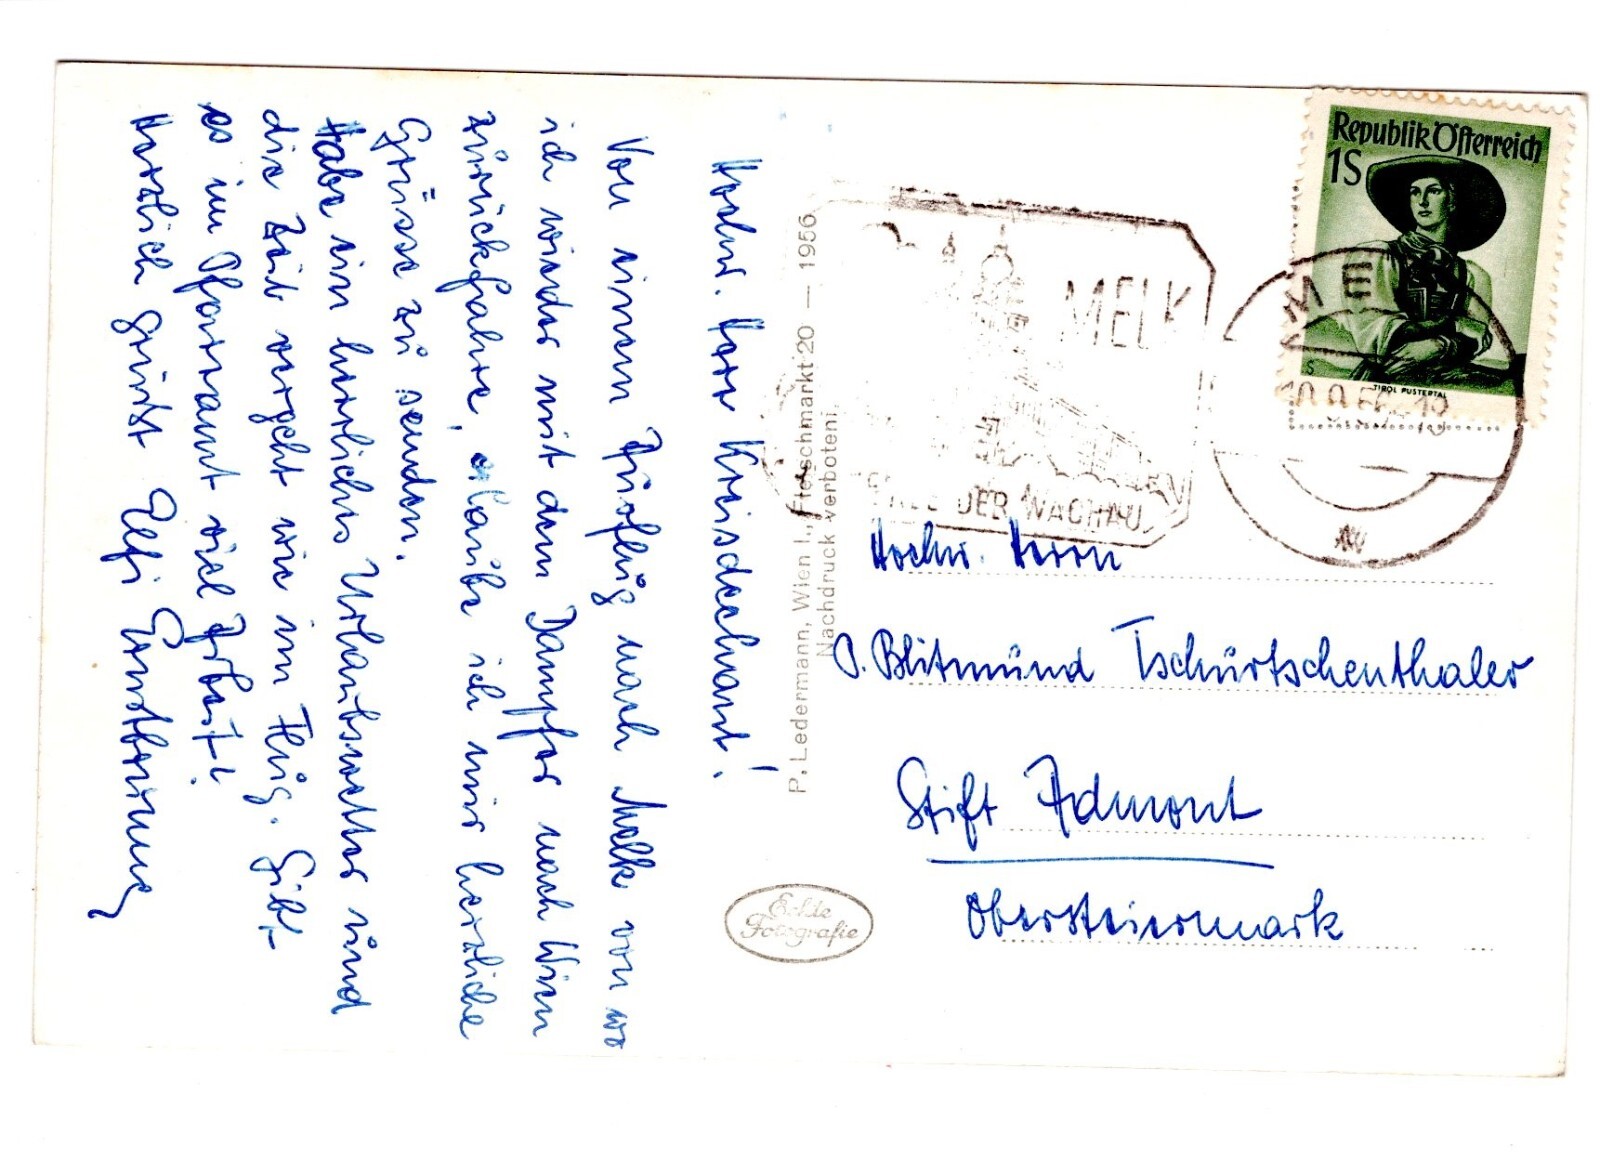 Hochw. Herr Kreisdechant!
Von einem Ausflug nach Melk von wo
ich wieder mit dem Dampfer nach Wien
zurückfahre, erlaube ich mir herzliche
Grüsse zu senden.
Habe ein herrliches Urlaubswetter und
die Zeit vergeht wie im Flug. Gibt
es im Pfarramt viel Arbeit?
Herzlich grüsst Elfi
P. Ledermann, Wien I., Fleischmarkt 20 — 1956
Nachdruck verboten!
Echte
Fotografie
Republik Österreich
1S
TIROL PUSTERTAL
MELK
DER WACHAU
MELK
Hochw. Herrn
P. Blitmund Tschurtschenthaler
Stift Admont
Obersteiermark